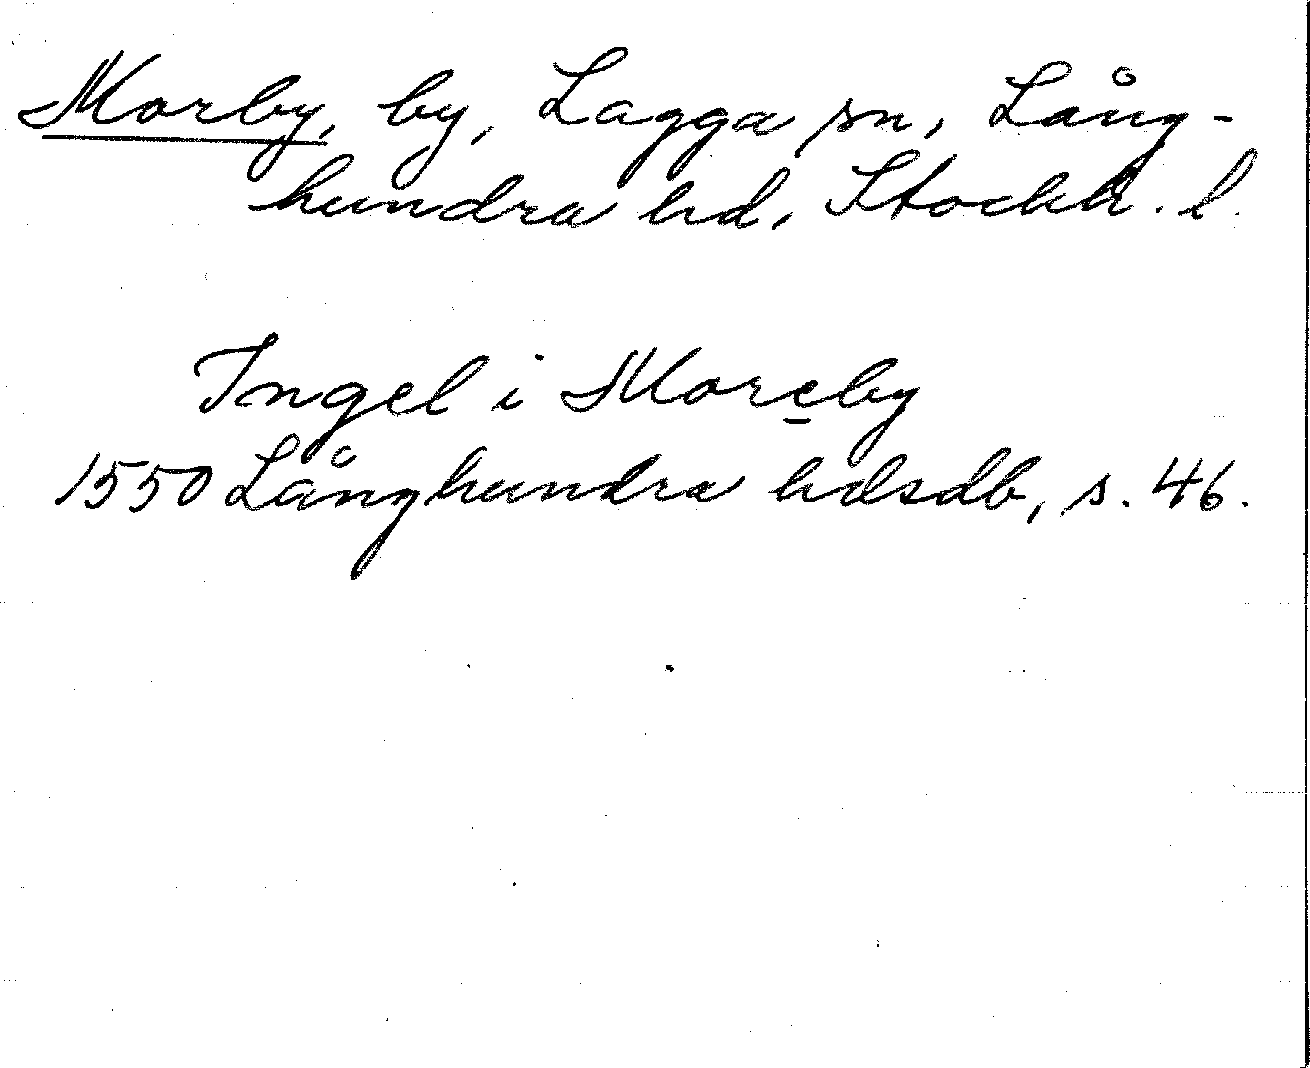 Morby, by, Lagga sn, Lång-
hundra hd, Stockh. l.
Ingel i Moreby
1550 Långhundra hdsdb, s. 46.